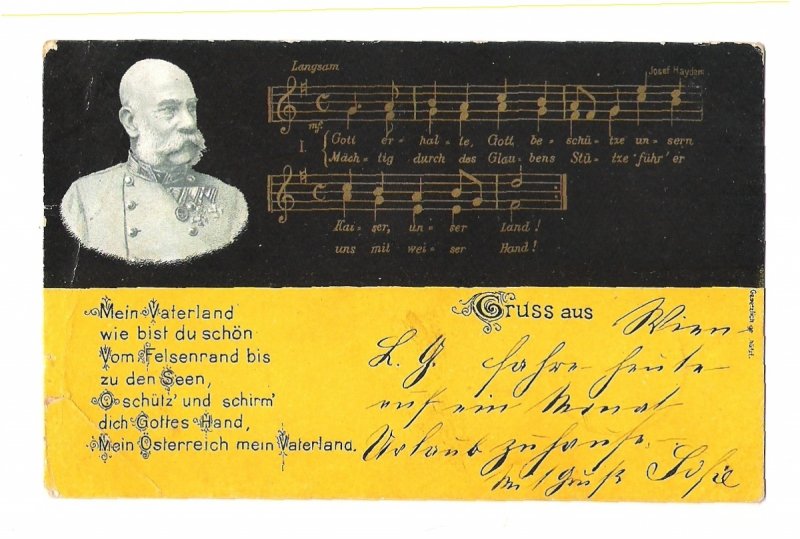 Langsam
Josef Haydn.
mf.
I. Gott er- hal- te, Gott be- schü- tze un- sern
Mäch- tig durch des Glau- bens Stü- tze führ' er
Kai- ser, un- ser Land!
uns mit wei- ser Hand!
Mein Vaterland
wie bist du schön
Vom Felsenrand bis
zu den Seen,
O schütz' und schirm'
dich Gottes Hand,
Mein Österreich mein Vaterland.
Gruss aus Wien
L. G. fahre heute
auf ein Monat
Urlaub zuhause.
Gruß